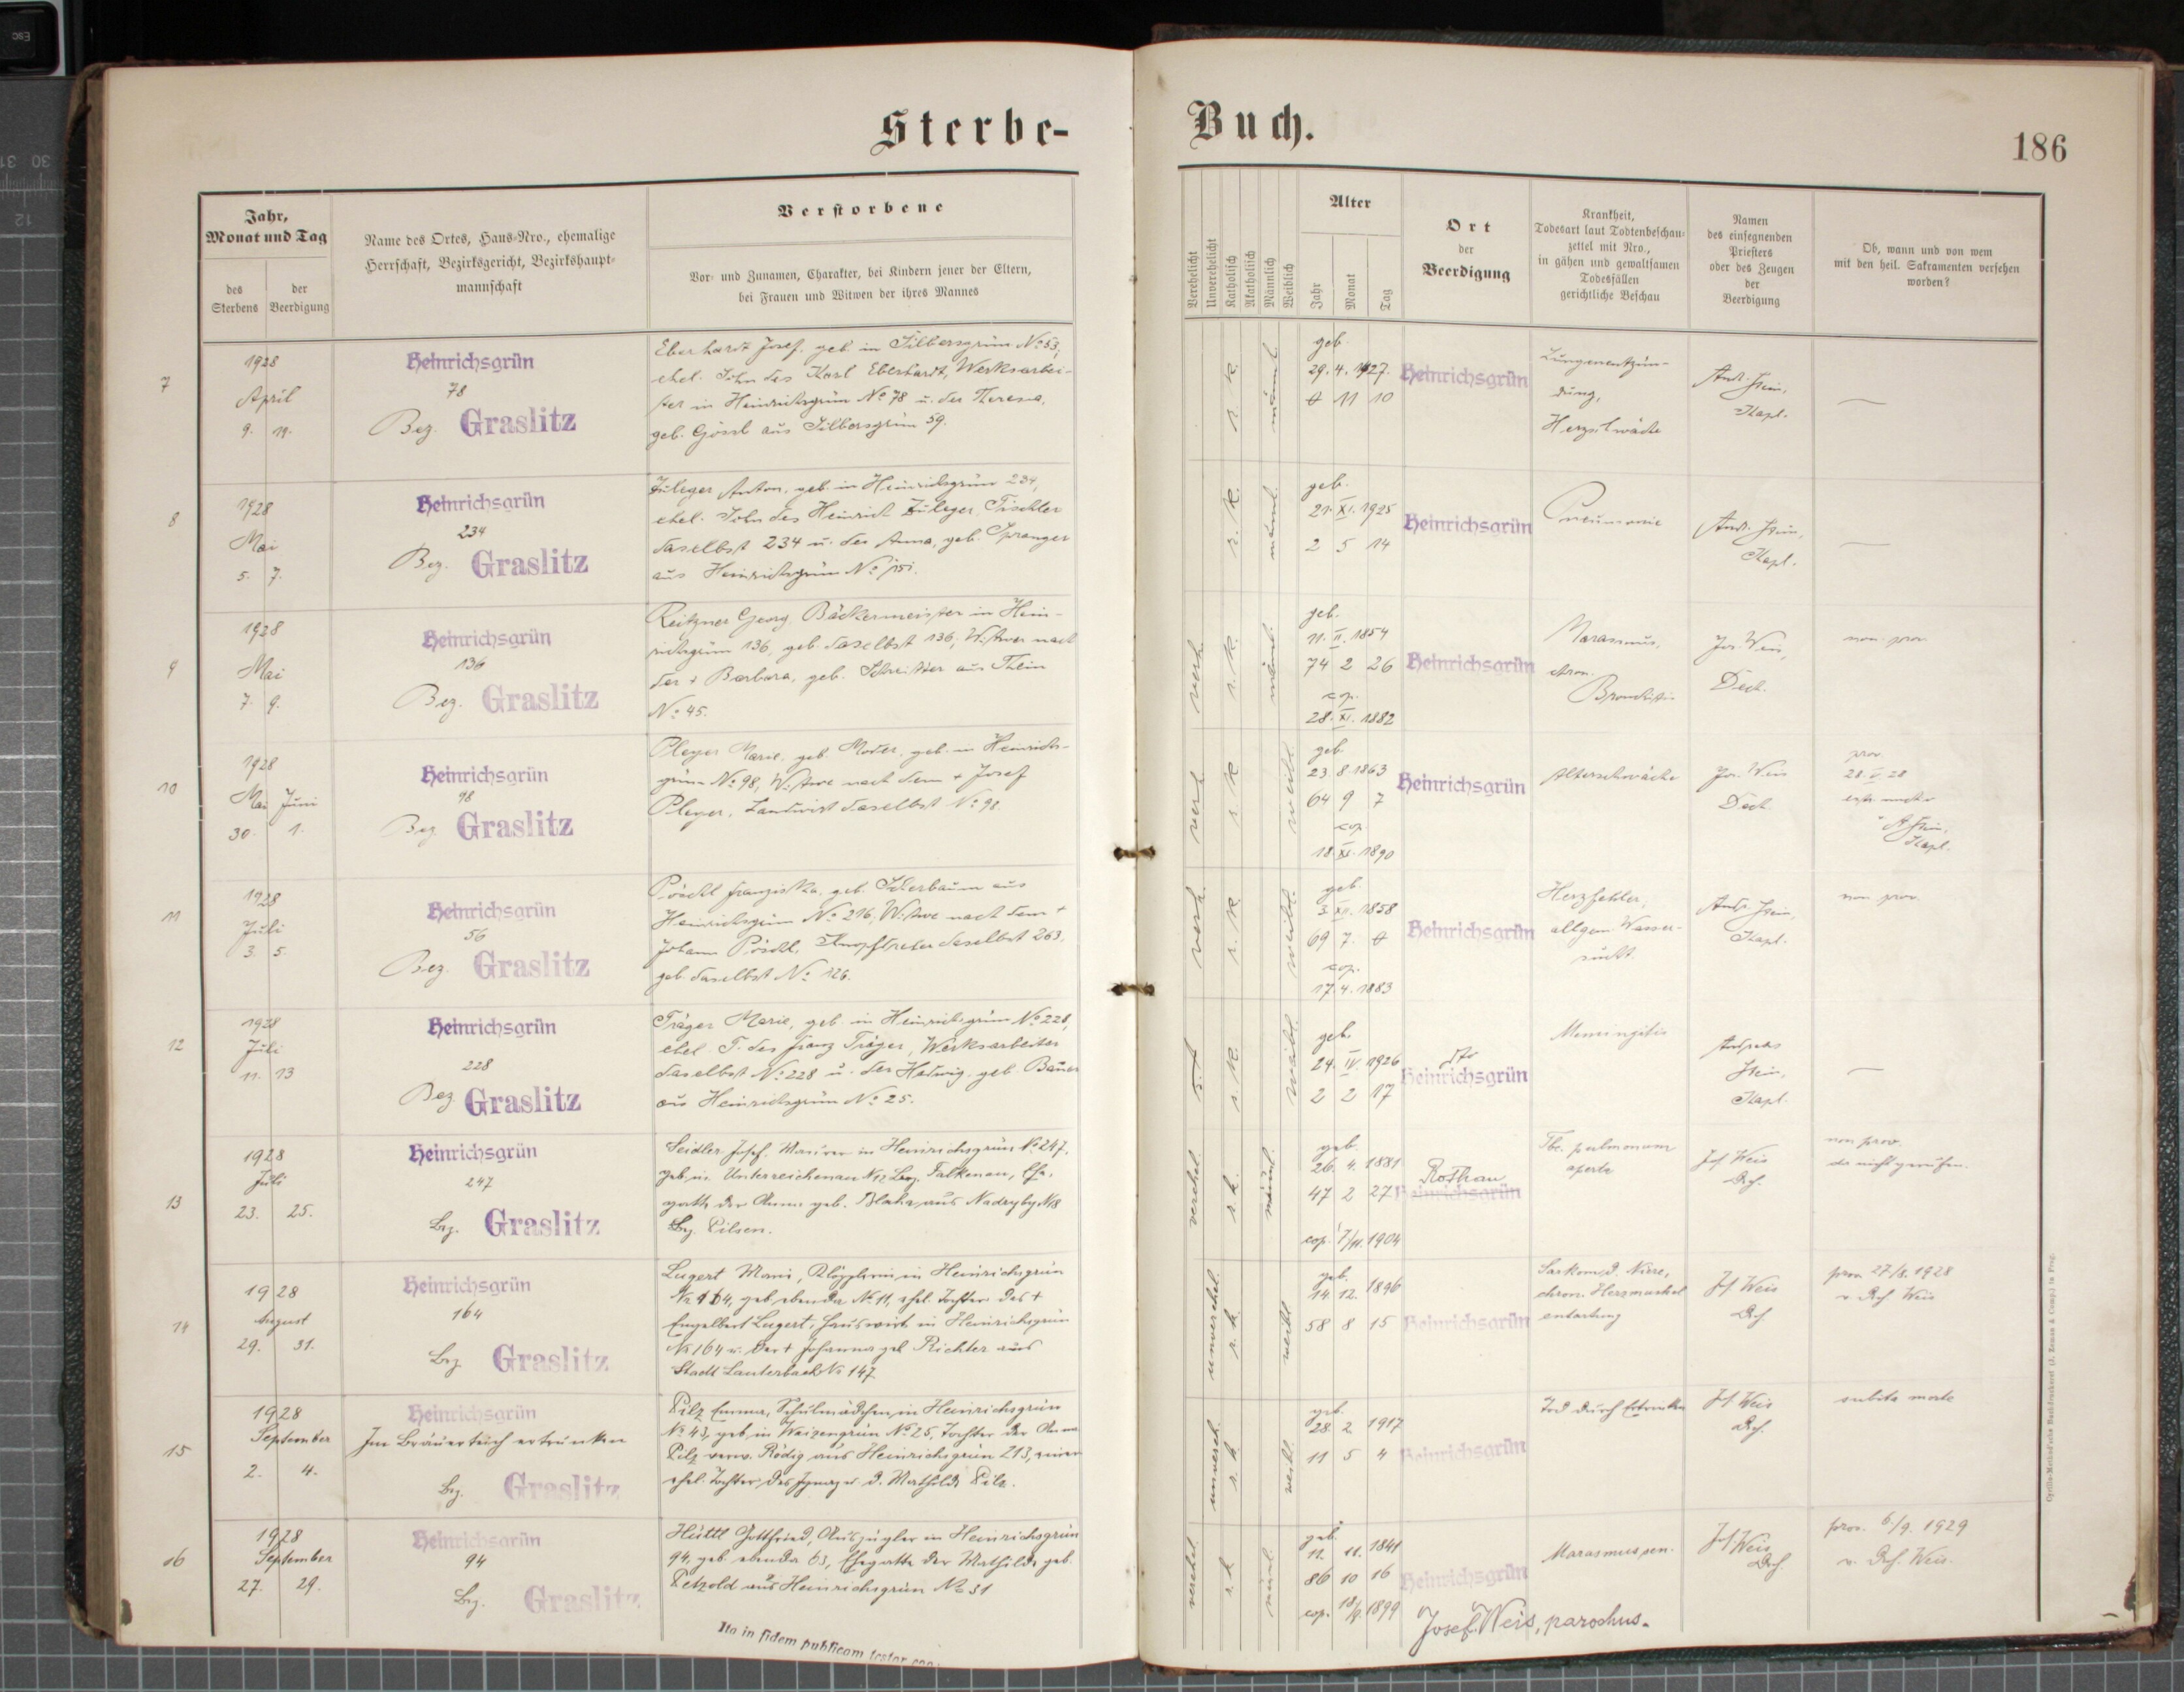 Sterbe-
Buch.
186
Jahr,
Monat und Tag
des Sterbens
der Beerdigung
Name des Ortes, Haus-Nro., ehemalige
Herrschaft, Bezirksgericht, Bezirkshaupt-
mannschaft
Verstorbene
Vor- und Zunamen, Charakter, bei Kindern jener der Eltern,
bei Frauen und Witwen der ihres Mannes
Verehelicht
Unverehelicht
Katholisch
Akatholisch
Männlich
Weiblich
Alter
Jahr
Monat
Tag
Ort
der
Beerdigung
Krankheit,
Todesart laut Todtenbeschau-
zettel mit Nro.,
in gähen und gewaltsamen
Todesfällen
gerichtliche Beschau
Namen
des einsegnenden
Priesters
oder des Zeugen
der
Beerdigung
Ob, wann und von wem
mit den heil. Sakramenten versehen
worden?
7
1928
April
9. 11.
Heinrichsgrün
78
Bez. Graslitz
Eberhardt Josef, geb. in Silbersgrün No 53,
ehel. Sohn des Karl Eberhardt, Werksarbei-
ter in Heinrichsgrün No 78 u. der Theresia,
geb. Gössl aus Silbersgrün 59.
r. k.
männl.
geb.
29. 4. 1927.
0 11 10
Heinrichsgrün
Lungenentzün-
dung,
Herzschwäche
Kapl.
—
8
1928
Mai
5. 7.
Heinrichsgrün
234
Bez. Graslitz
Zuleger Anton, geb. in Heinrichsgrün 234,
ehel. Sohn des Heinrich Zuleger, Tischler
daselbst 234 u. der Anna, geb. Spranger
aus Heinrichsgrün No
r. k.
männl.
geb.
21. XI. 1925
2 5 14
Heinrichsgrün
Pneumonie
Kapl.
—
9
1928
Mai
7. 9.
Heinrichsgrün
136
Bez. Graslitz
Reitzner Georg, Bäckermeister in Hein-
richsgrün 136, geb. daselbst 136, Witwer nach
der + Barbara, geb. aus Thein
No 45.
verh.
r. k.
männl.
geb.
11. II. 1854
74 2 26
cop.
28. XI. 1882
Heinrichsgrün
Marasmus,
chron.
Bronchitis
Jos. Weis,
Dech.
non prov.
10
1928
Mai Juni
30. 1.
Heinrichsgrün
98
Bez Graslitz
Pleyer Marie, geb. Moder, geb. in Heinrichs-
grün No 98, Witwe nach dem + Josef
Pleyer, Landwirt daselbst No 98.
verh.
r. k.
weibl.
geb.
23. 8. 1863
64 9 7
cop.
18. XI. 1890
Heinrichsgrün
Altersschwäche
Jos. Weis
Dech.
prov.
28. V. 28
Kapl.
11
1928
Juli
3. 5.
Heinrichsgrün
56
Bez. Graslitz
Pöschl Franziska, geb. aus
Heinrichsgrün No 216, Witwe nach dem +
Johann Pöschl, daselbst 263,
geb. daselbst No 126.
verh.
r. k.
weibl.
geb.
3. XII. 1858
69 7. 0
cop.
17. 4. 1883
Heinrichsgrün
Herzfehler,
allgem. Wasser-
sucht.
Kapl.
non prov.
12
1928
Juli
11. 13
Heinrichsgrün
228
Bez Graslitz
Träger Marie, geb. in Heinrichsgrün No 228,
ehel. T. des Franz Träger, Werksarbeiter
daselbst No 228 u. der Hedwig, geb. Bauer
aus Heinrichsgrün No 25.
r. k.
weibl.
geb.
24. IV. 1926
2 2 17
Heinrichsgrün
Meningitis
Andreas
Kapl.
—
13
1928
Juli
23. 25.
Heinrichsgrün
247
Bez. Graslitz
Seidler Josef, Maurer in Heinrichsgrün No 247,
geb. in Unterreichenau No 12 Bez. Falkenau, Ehe-
gatte der Anna geb. Blaha aus No 8
Bez. Pilsen.
verehel.
r. k.
männl.
geb.
26. 4. 1881
47 2 27
cop. 1904
Rothau
Heinrichsgrün
Tbc. pulmonum
aperta
Jos Weis
Dech.
non prov.
da nicht gerufen.
14
1928
August
29. 31.
Heinrichsgrün
164
Bez Graslitz
Lugert Marie, Klöpplerin in Heinrichsgrün
No 164, geb. ebenda No 11, ehel. Tochter des +
Engelbert Lugert, Hauswirt in Heinrichsgrün
No 164 u. der + Johanna geb. Richter aus
Stadt Lauterbach No 147
unverehel.
r. k.
weibl.
geb.
14. 12. 1896
58 8 15
Heinrichsgrün
Sarkom d. Niere,
chron. Herzmuskel
entartung
Jos Weis
Dech
prov. 27/8. 1928
v. Dech Weis
15
1928
September
2. 4.
Heinrichsgrün
Im Bräuerteich ertrunken
Bez. Graslitz
Pilz Emma, Schulmädchen in Heinrichsgrün
No 43, geb. in Waizengrün No 25, Tochter der Anna
Pilz verw. Rödig aus Heinrichsgrün 213, einer
ehel. Tochter des Ignaz u. d. Mathilde Pilz.
unvereh.
r. k.
weibl.
geb.
28. 2. 1917
11 5 4
Heinrichsgrün
Tod durch Ertrinken
Jos Weis
Dech.
subita morte
16
1928
September
27. 29.
Heinrichsgrün
94
Bez. Graslitz
Hüttl Gottfried, Auszügler in Heinrichsgrün
94, geb. ebenda 63, Ehegatte der Mathilde geb.
Petzold aus Heinrichsgrün No 31
verehel.
r. k
männl.
geb.
11. 11. 1841
86 10 16
cop. 1899
Heinrichsgrün
Marasmus sen.
Jos Weis
Dech.
prov. 6/9. 1929
v. Dech. Weis.
Ita in fidem publicam testor
Josef Weis, parochus.
Cyrillo-Method'sche Buchdruckerei (J. Zeman & Comp.) in Prag.